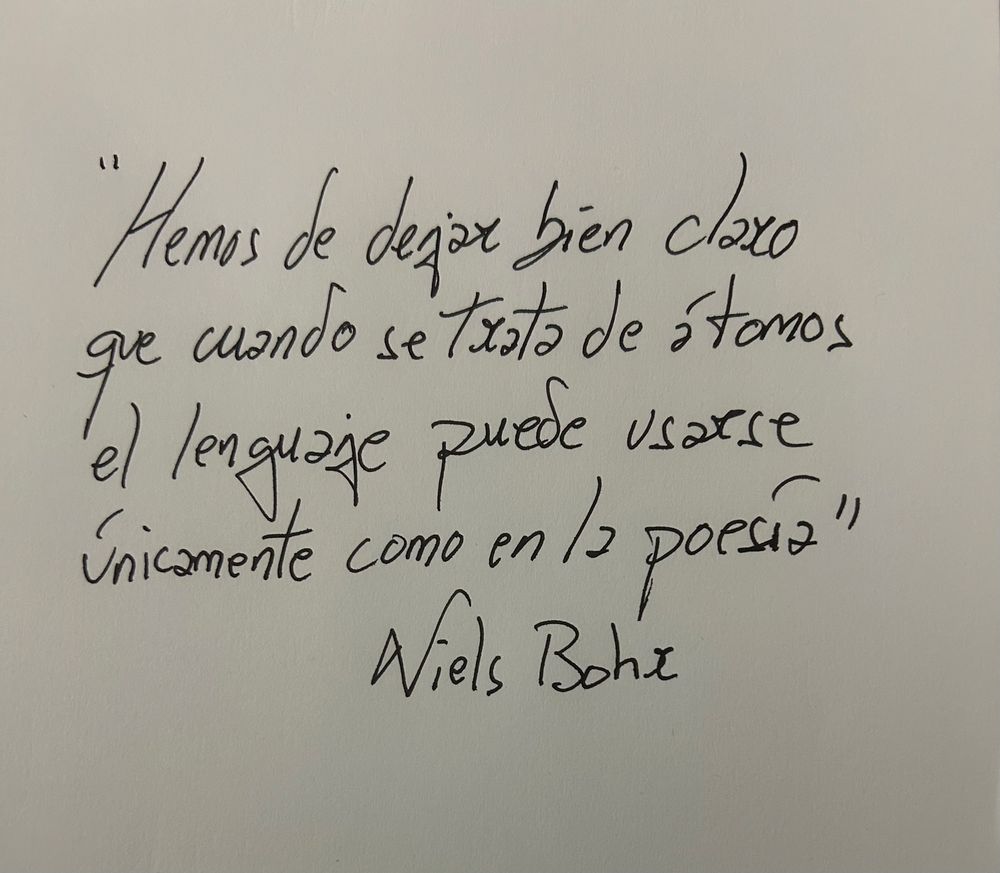 "Hemos de dejar bien claro
que cuando se trata de átomos
el lenguaje puede usarse
únicamente como en la poesía"
Niels Bohr